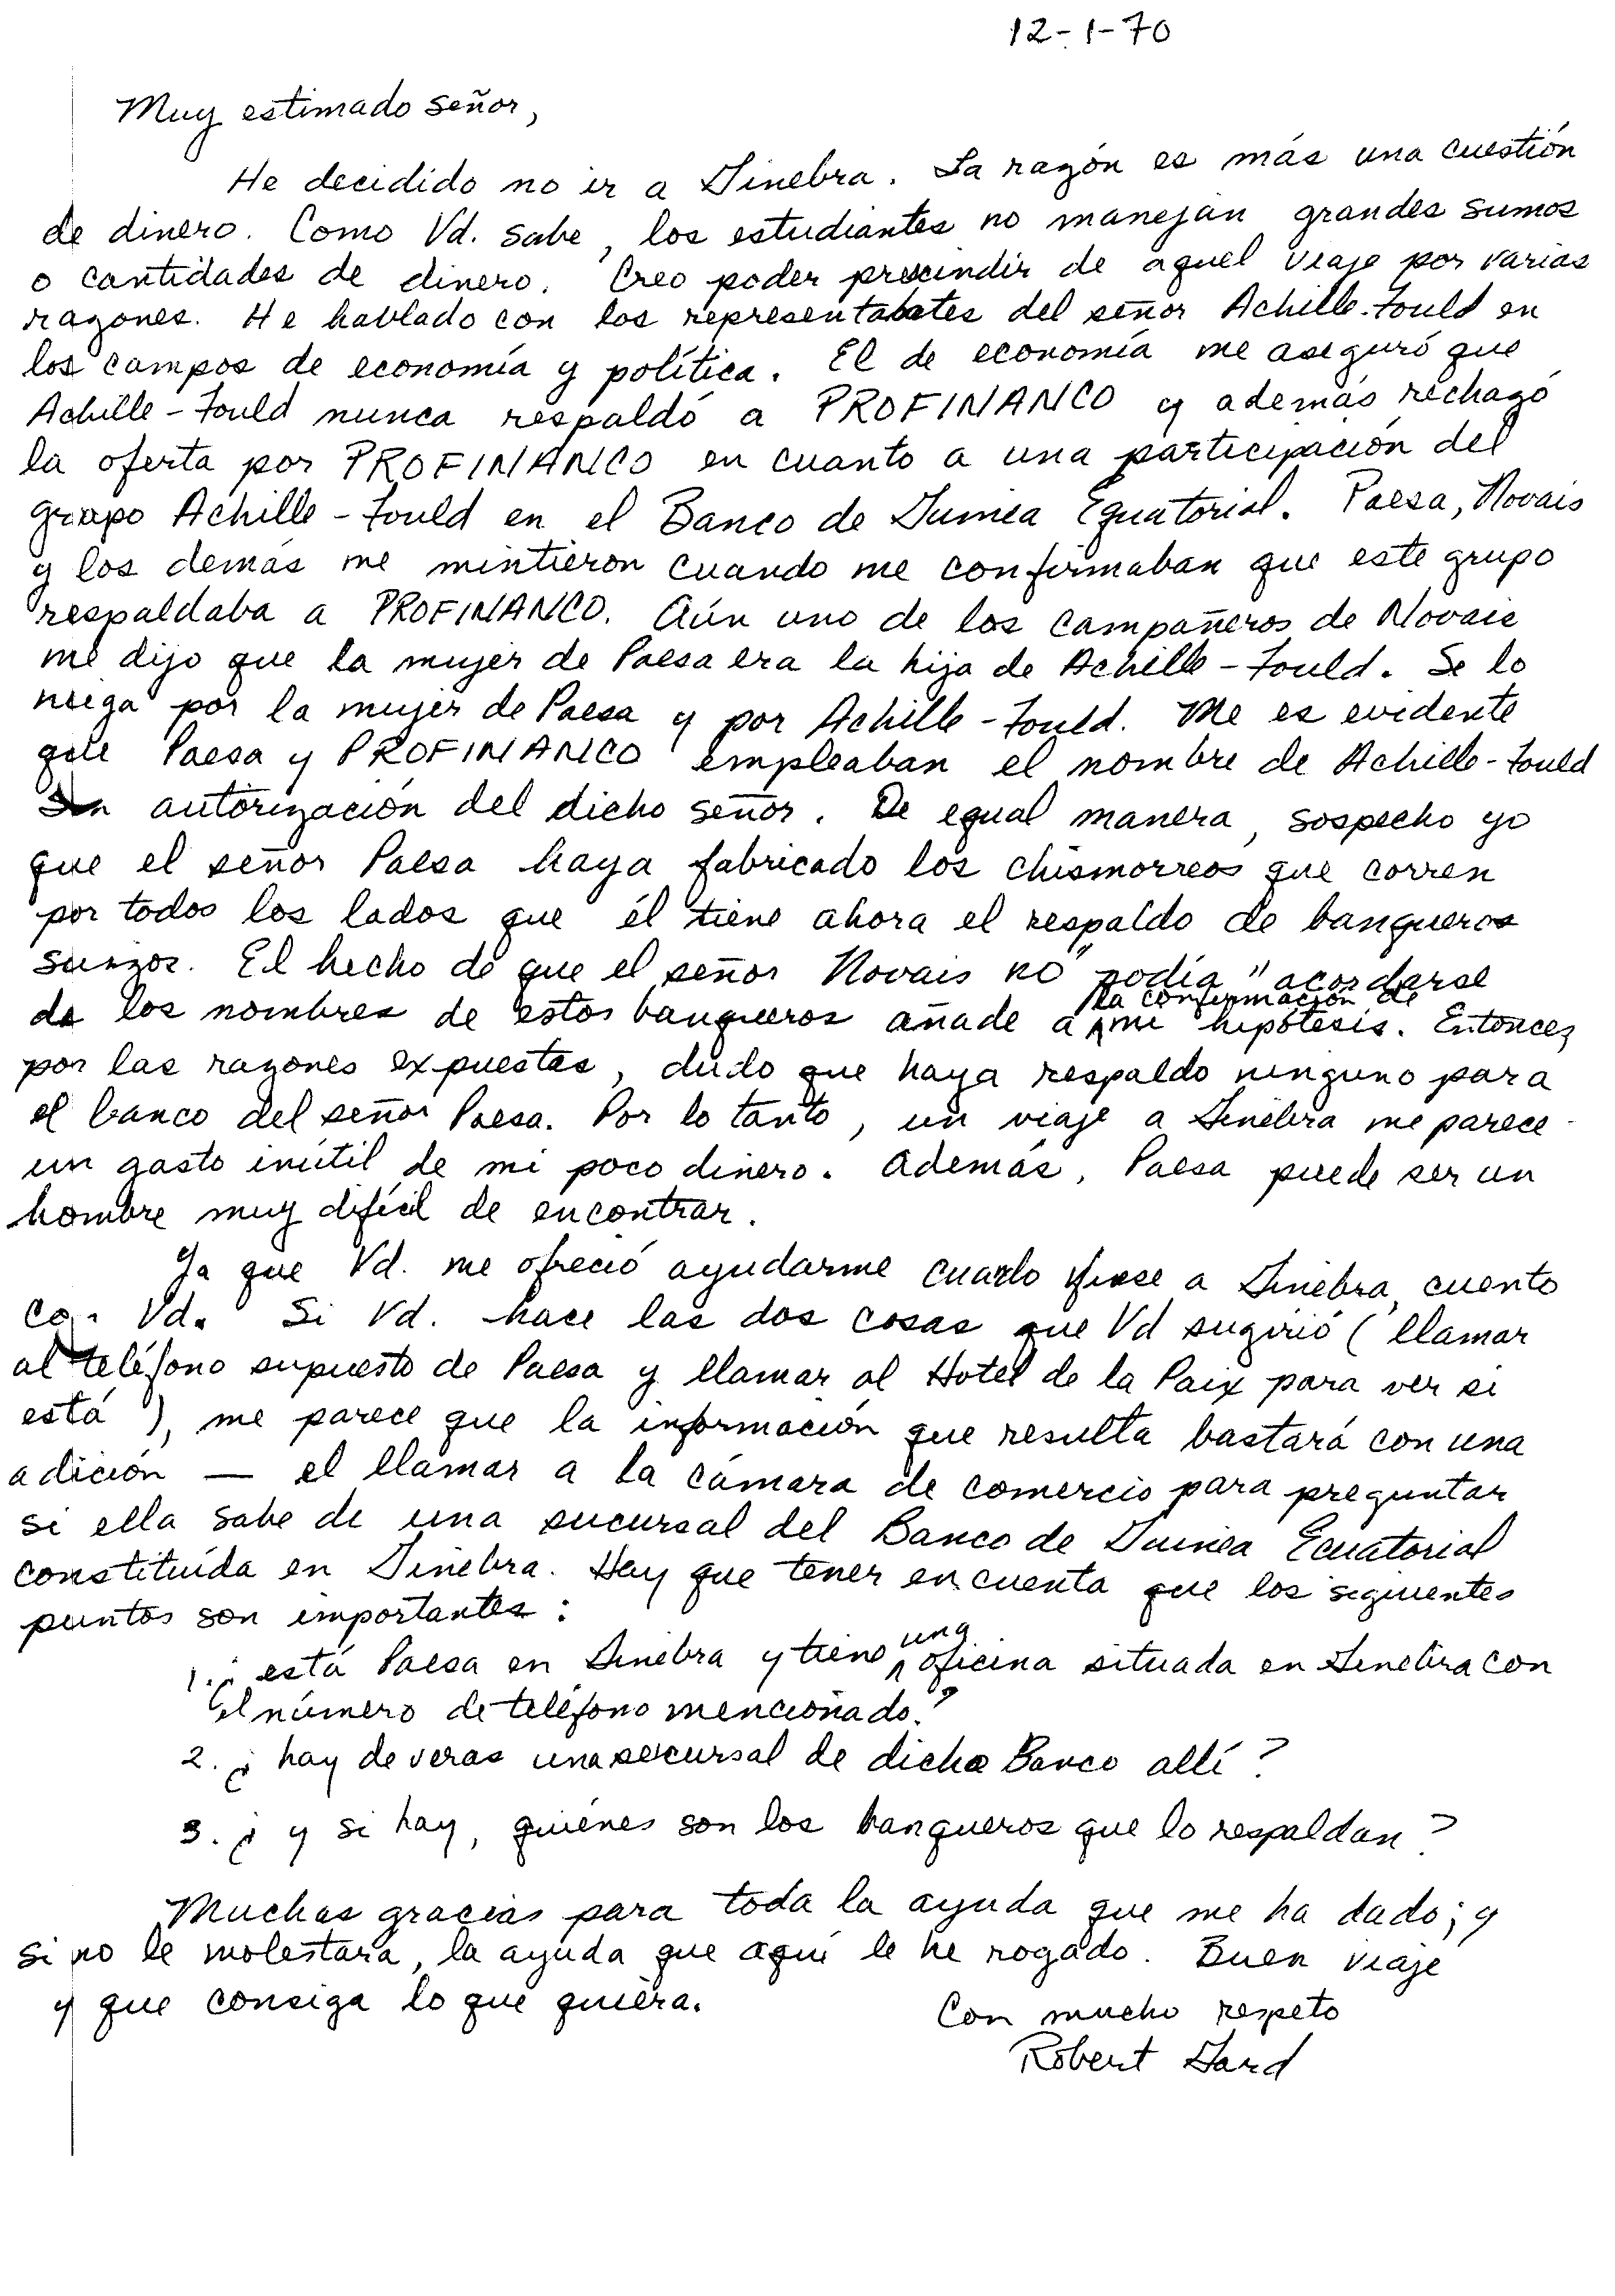 12-1-70
Muy estimado señor,
He decidido no ir a Ginebra. La razón es más una cuestión
de dinero. Como Vd. sabe, los estudiantes no manejan grandes sumos
o cantidades de dinero. Creo poder prescindir de aquel viaje por varias
razones. He hablado con los representantes del señor Achille-Fould en
los campos de economía y política. El de economía me aseguró que
Achille-Fould nunca respaldó a PROFINANCO y además rechazó
la oferta por PROFINANCO en cuanto a una participación del
grupo Achille-Fould en el Banco de Guinea Equatorial. Paesa, Novais
y los demás me mintieron cuando me confirmaban que este grupo
respaldaba a PROFINANCO. Aún uno de los campañeros de Novais
me dijo que la mujer de Paesa era la hija de Achille-Fould. Se lo
neiga por la mujer de Paesa y por Achille-Fould. Me es evidente
que Paesa y PROFINANCO empleaban el nombre de Achille-Fould
sin autorización del dicho señor. De egual manera, sospecho yo
que el señor Paesa haya fabricado los chismorreos que corren
por todos los lados que él tiene ahora el respaldo de banqueros
suizos. El hecho de que el señor Novais no "podía" acordarse
de los nombres de estos banqueros añade a la confirmación de mi hipótesis. Entonces,
por las razones expuestas, dudo que haya respaldo ninguno para
el banco del señor Paesa. Por lo tanto, un viaje a Ginebra me parece
un gasto inútil de mi poco dinero. Además, Paesa puede ser un
hombre muy difícil de encontrar.
Ya que Vd. me ofreció ayudarme cuando fuese a Ginebra, cuento
con Vd. Si Vd. hace las dos cosas que Vd sugirió (llamar
al teléfono supuesto de Paesa y llamar al Hotel de la Paix para ver si
está), me parece que la información que resulta bastará con una
adición — el llamar a la cámara de comercio para preguntar
si ella sabe de una sucursal del Banco de Guinea Ecuatorial
constituída en Ginebra. Hay que tener en cuenta que los siguientes
puntos son importantes:
1. ¿está Paesa en Ginebra y tiene una oficina situada en Ginebra con
el número de teléfono mencionado?
2. ¿hay de veras una sucursal de dicho Banco allí?
3. ¿y si hay, quiénes son los banqueros que lo respaldan?
Muchas gracias para toda la ayuda que me ha dado; y
si no le molestara, la ayuda que aquí le he rogado. Buen viaje
y que consiga lo que quiera.
Con mucho respeto
Robert Gard